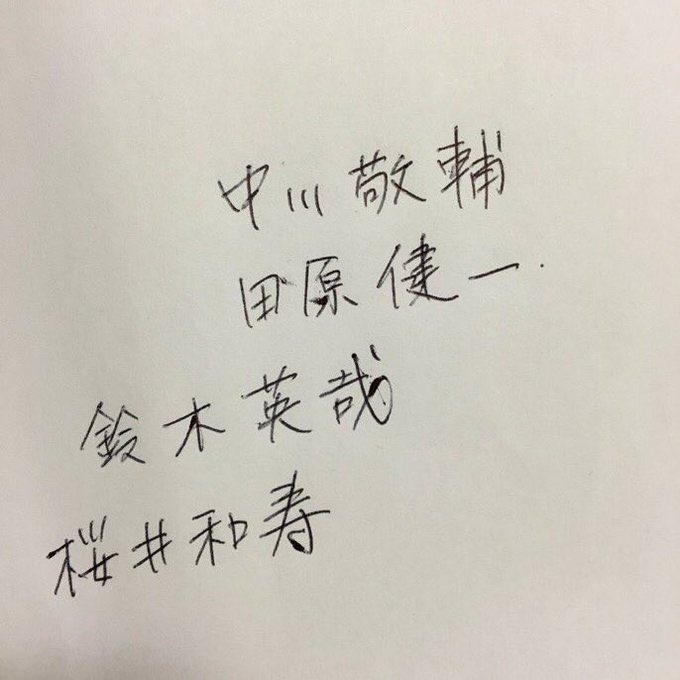 中川敬輔
田原健一
鈴木英哉
桜井和寿